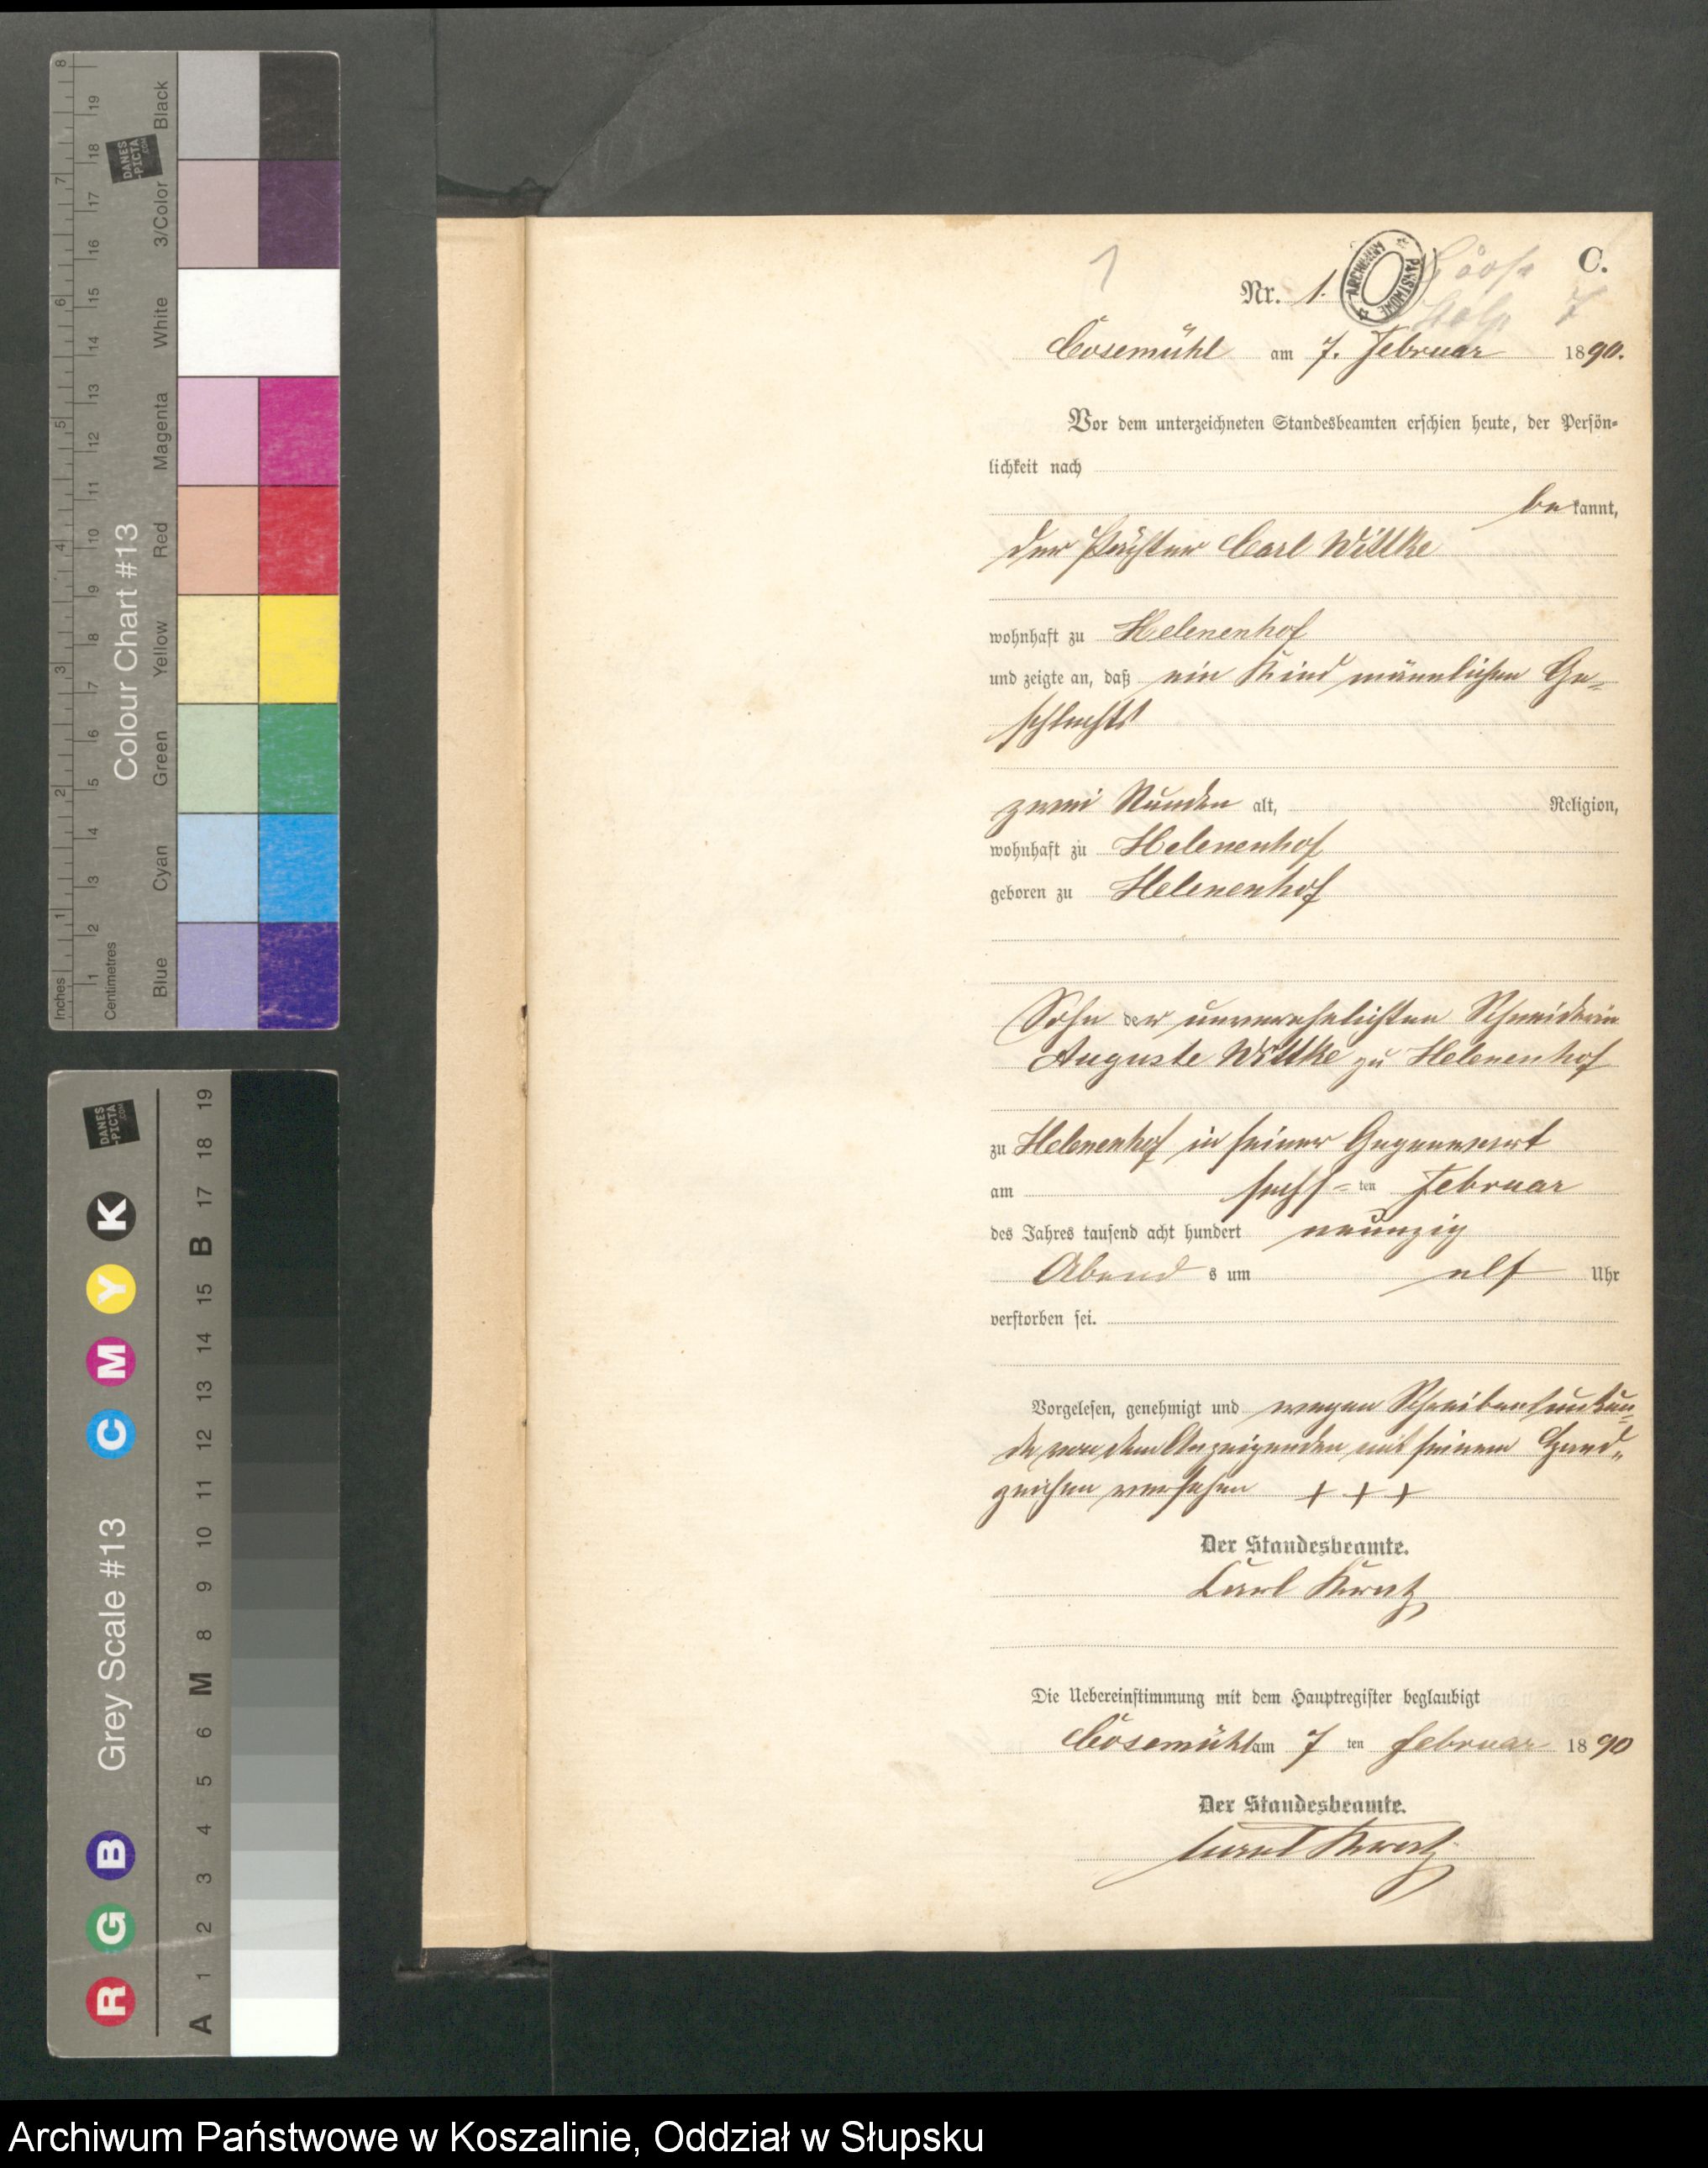 8
19
Black
18
DANES
-PICTA
.COM
7
17
3/Color
16
6
15
White
14
13
5
12
Magenta
11
4
10
Red
9
Colour Chart #13
8
Yellow
3
7
6
Green
2
5
4
Cyan
3
1
2
1
Inches
Centimetres
Blue
DANES
-PICTA
.COM
19
18
K
17
B
Y
15
14
M
13
C
12
11
10
Grey Scale #13
9
8
M
6
5
B
4
3
G
2
R
1
A
1
C.
Nr. 1.
ARCHIWUM PAŃSTWOWE
7
Cosemühl am 7. Februar 1890.
Vor dem unterzeichneten Standesbeamten erschien heute, der Persön-
lichkeit nach
bekannt,
der Pächter Carl Wittke
wohnhaft zu Helenenhof
und zeigte an, daß ein Kind männlichen Ge-
schlechts
zwei Stunden alt, Religion,
wohnhaft zu Helenenhof
geboren zu Helenenhof
Sohn der unverehelichten Schneiderin
Auguste Wittke zu Helenenhof
zu Helenenhof in seiner Gegenwart
am sechs-ten Februar
des Jahres tausend acht hundert neunzig
Abends um elf Uhr
verstorben sei.
Vorgelesen, genehmigt und wegen Schreibensunkun-
de von dem Anzeigenden mit seinem Hand-
zeichen versehen + + +
Der Standesbeamte.
Carl Kratz
Die Uebereinstimmung mit dem Hauptregister beglaubigt
Cosemühl am 7 ten Februar 1890
Der Standesbeamte.
Carl Kratz
Archiwum Państwowe w Koszalinie, Oddział w Słupsku